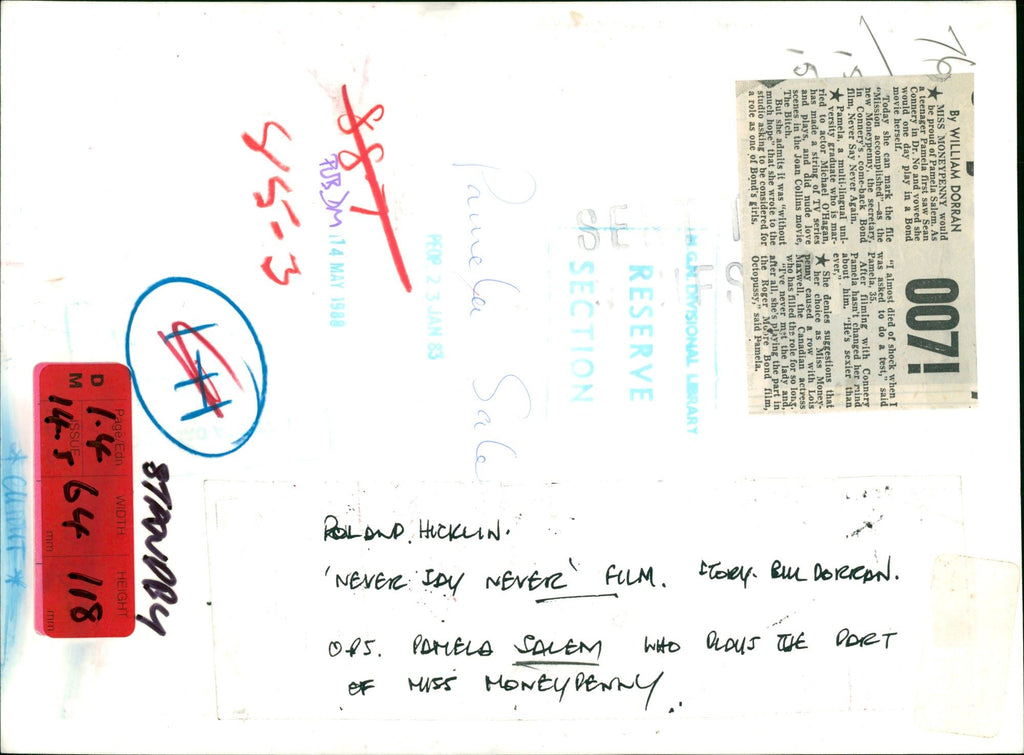 76
By WILLIAM DORRAN
★ MISS MONEYPENNY would
be proud of Pamela Salem. As
a teenager Pamela first saw Sean
Connery in Dr. No and vowed she
would one day play in a Bond
movie herself.
Today she can mark the file
"Mission accomplished"—as the
new Moneypenny, the secretary,
in Connery's come-back Bond
film, Never Say Never Again.
★ Pamela, a multi-lingual uni-
versity graduate who is mar-
ried to actor Michael O'Hagan,
has made a string of TV series
and plays, and did nude love
scenes in the Joan Collins movie,
The Bitch.
But she admits it was "without
much hope" that she wrote to the
studio asking to be considered for
a role as one of Bond's girls.
007!
"I almost died of shock when I
was asked to do a test," said
Pamela, 35.
After filming with Connery
Pamela hasn't changed her mind
about him. "He's sexier than
ever."
★ She denies suggestions that
her choice as Miss Money-
penny caused a row with Lois
Maxwell, the Canadian actress
who has filled the role for so long.
"I've never met the lady and,
after all, she's playing the part in
the Roger Moore Bond film,
Octopussy," said Pamela.
M.G.N. DIVISIONAL LIBRARY
RESERVE
SECTION
Pamela Sale
PROP 23 JAN 83
887
PUB DM 14 MAY 1988
45=3
LH
STANDBY
Page/Edn WIDTH HEIGHT
D 1.4 64 118
M ISSUE mm mm
14-5
* CUTOUT *
ROLAND. HICKLIN.
'NEVER SAY NEVER' FILM. STORY. BILL DORRAN.
OPS. PAMELA SALEM WHO PLAYS THE PART
OF MISS MONEYPENNY.